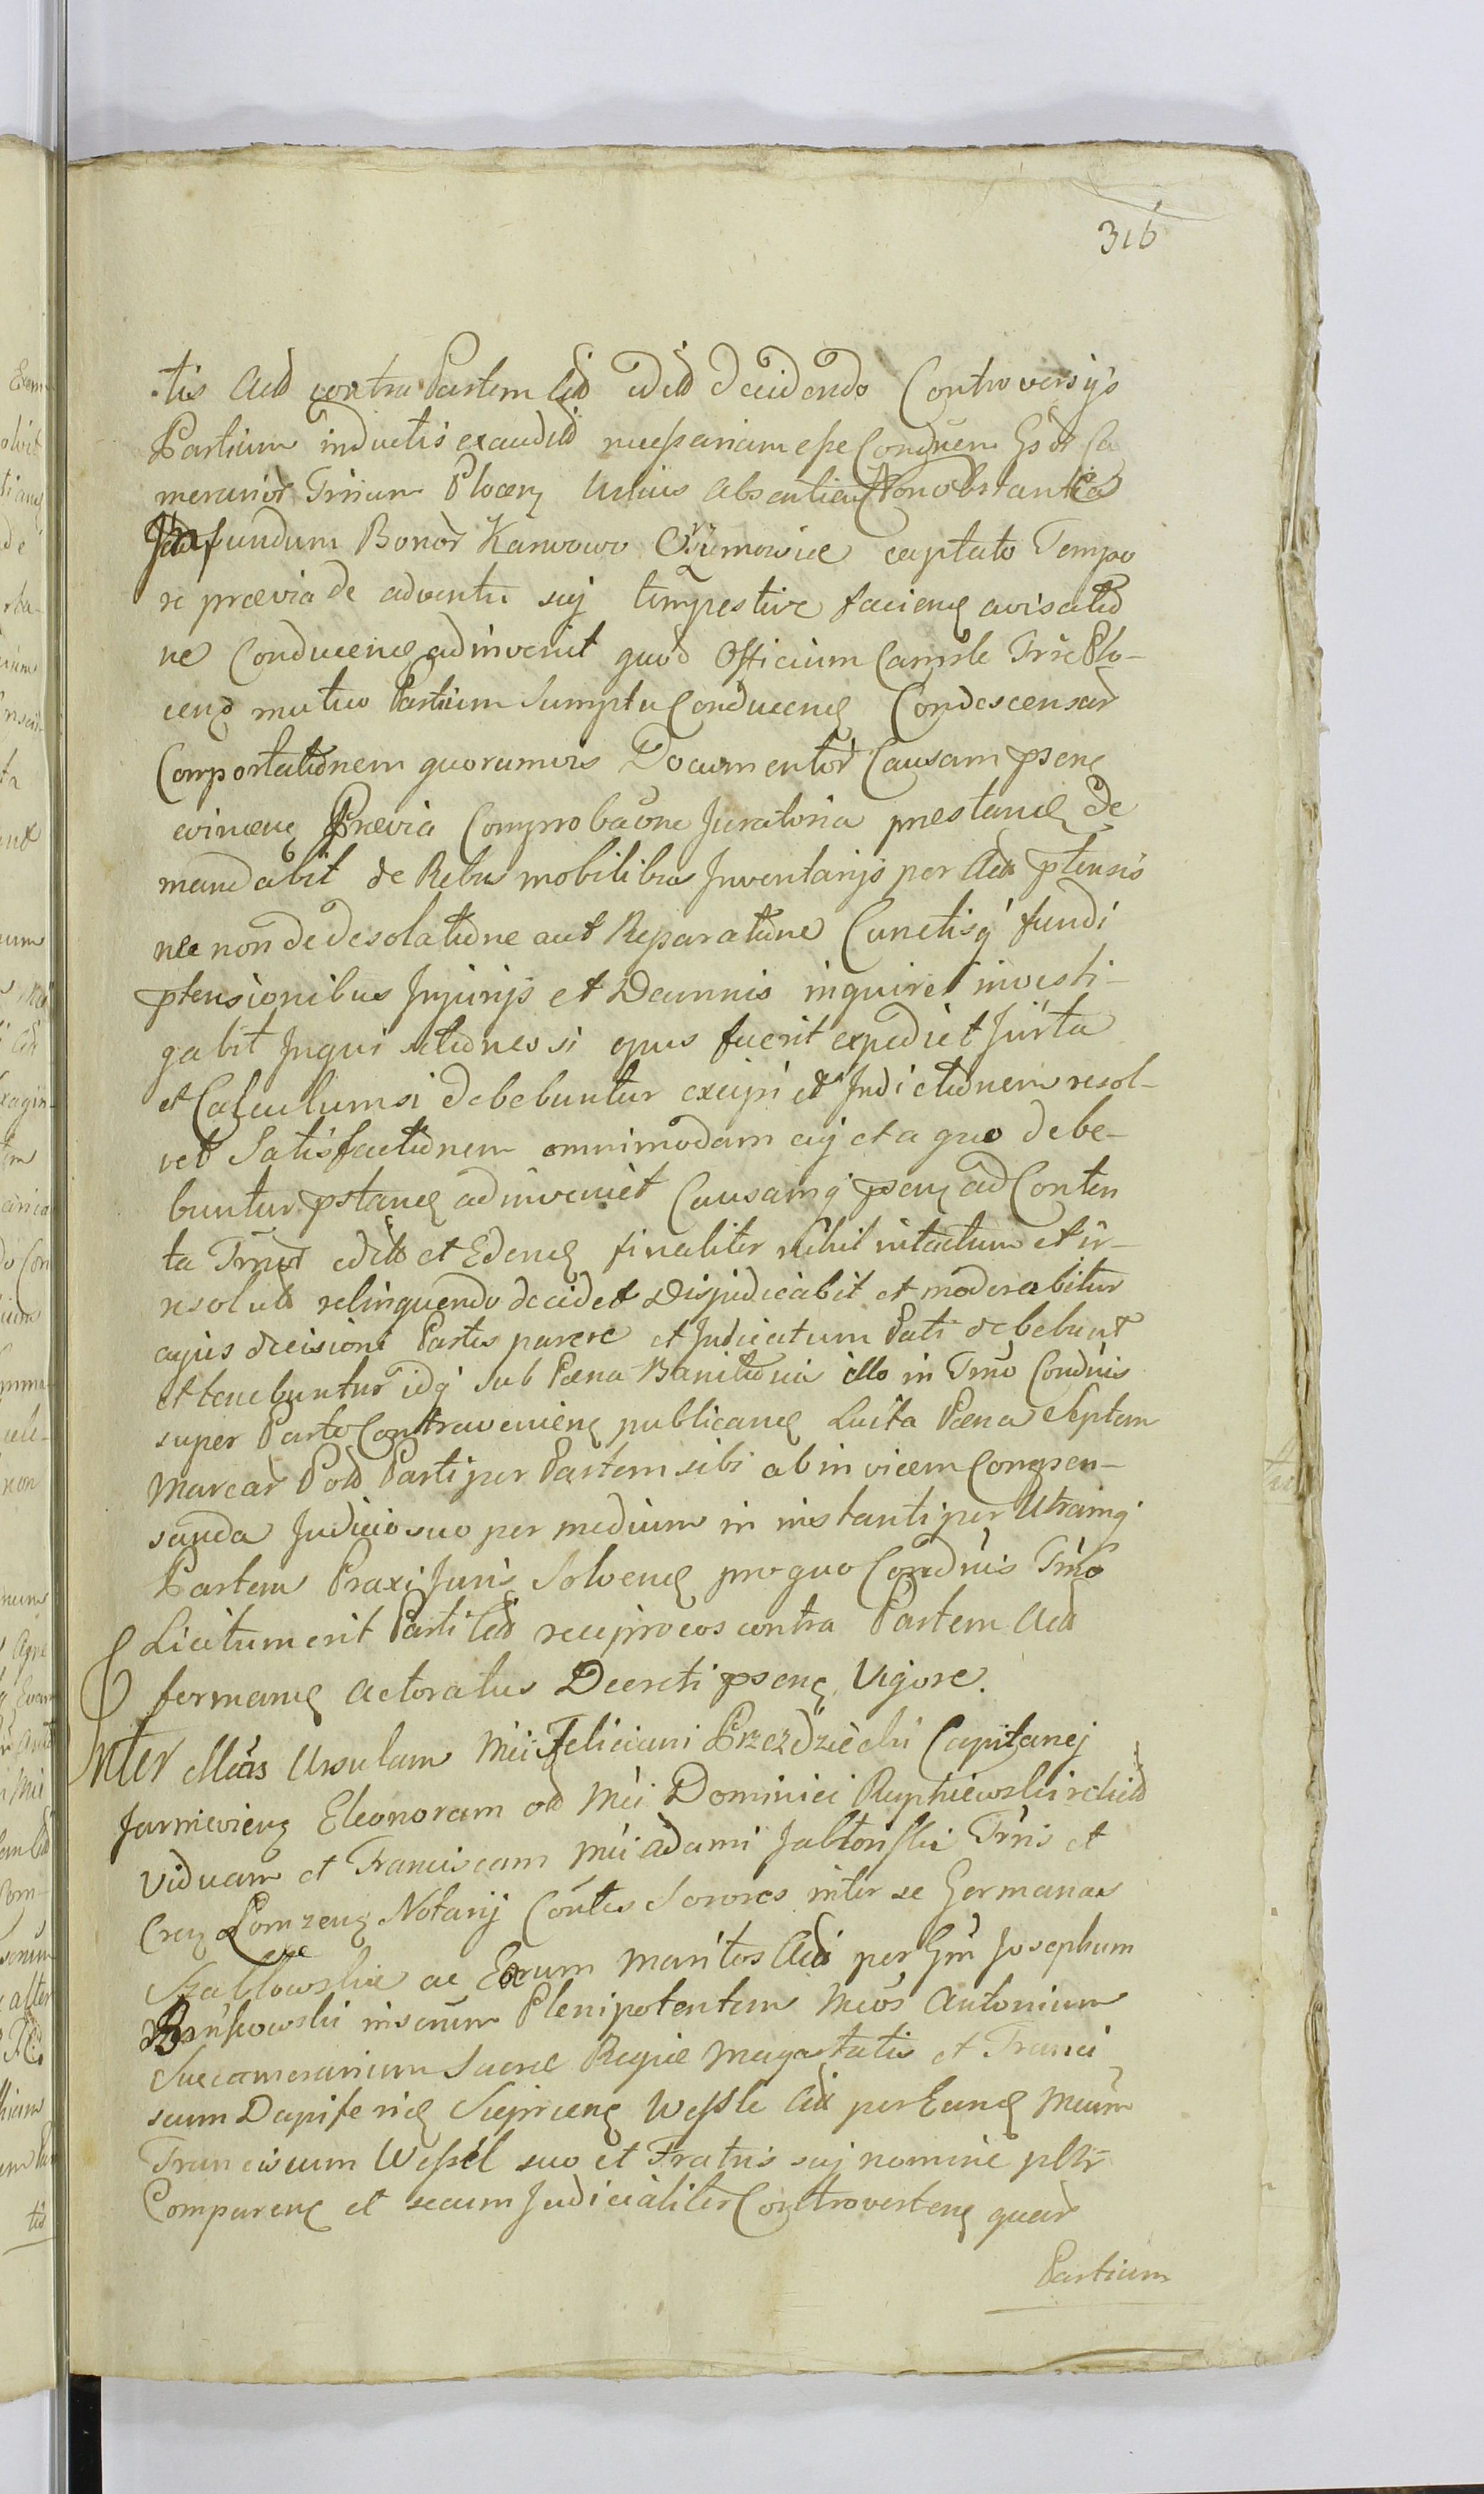 316
tis Actā contra Partem Citā edita decidendo Controversijs
Partium inductis exaudita necessariam esse Conduen Gsor Ca
merarior Trium Plocen Unius absentia Nonobstante
fundum Bonor Karwowo Orszymowice captato Tempo
re prævia de adventu suj tempestive faciend avisatio
ne Conducend adinvenit quod Officium Camrle Trre Plo-
cens mutuo Partium Sumptu Conducend Condescensur
Comportationem quorumvis Documentor Causam psenc
evincen Prævia Comprobaone Juratoria præstand De
mandabit de Rebus mobilibus Inventarijs per Acta ptensis
nec non de desolatione aut Reparatione Cunctisq fundi
ptensionibus Injurijs et Damnis inquiret investi-
gabit Inquisitiones si opus fuerit expediet Juxta
et Calculum si debebuntur excipi et Indictionem resol-
vet Satisfactionem omnimodam cuj et a quo debe-
buntur pstand adinveniet Causamq psen ad Conten
ta Trnor edit et Edend finaliter nihil intactum et ir-
resolutū relinquendo decidet Disjudicabit et moderabitur
cujus decisioni Partes parere et Judicatum Pati debebunt
et tenebuntur idq sub Pæna Banitionis illo in Trno Condnis
super Parte Contravenienc publicand Luita Pæna Septem
Marcar Pold Parti per Partem sibi ab invicem Compen-
sanda Judicio suo per medium in instanti per Utramq
Partem Praxi Juris Solvend pro quo Condnis Trno
Licitum erit Parti Citā reciprocos contra Partem Actā
fermand actoratus Decreti psenc Vigore.
Inter Mcas Ursulam Mci Feliciani Przezdziecki Capitanej
Eleonoram od Mci Dominici Rupniewski relictā
Viduam et Franciscam Mci Adami Jabłonski Trris et
Cren Łomzens Notarij Contes Sorores inter se Germanas
Szabłowskie ac Earum maritos Actā per Gm Josephum
inscrum Plenipotentem Mcos Antonium
Succamerarium Sacræ Regiæ Magestatis et Franci
scum Dapiferid Wessle Citā per Eund Mcum
Franciscum Wessel suo et Fratris suj nomine pltr
Comparenc et secum Judicialiter Controvertenc quar
Partium